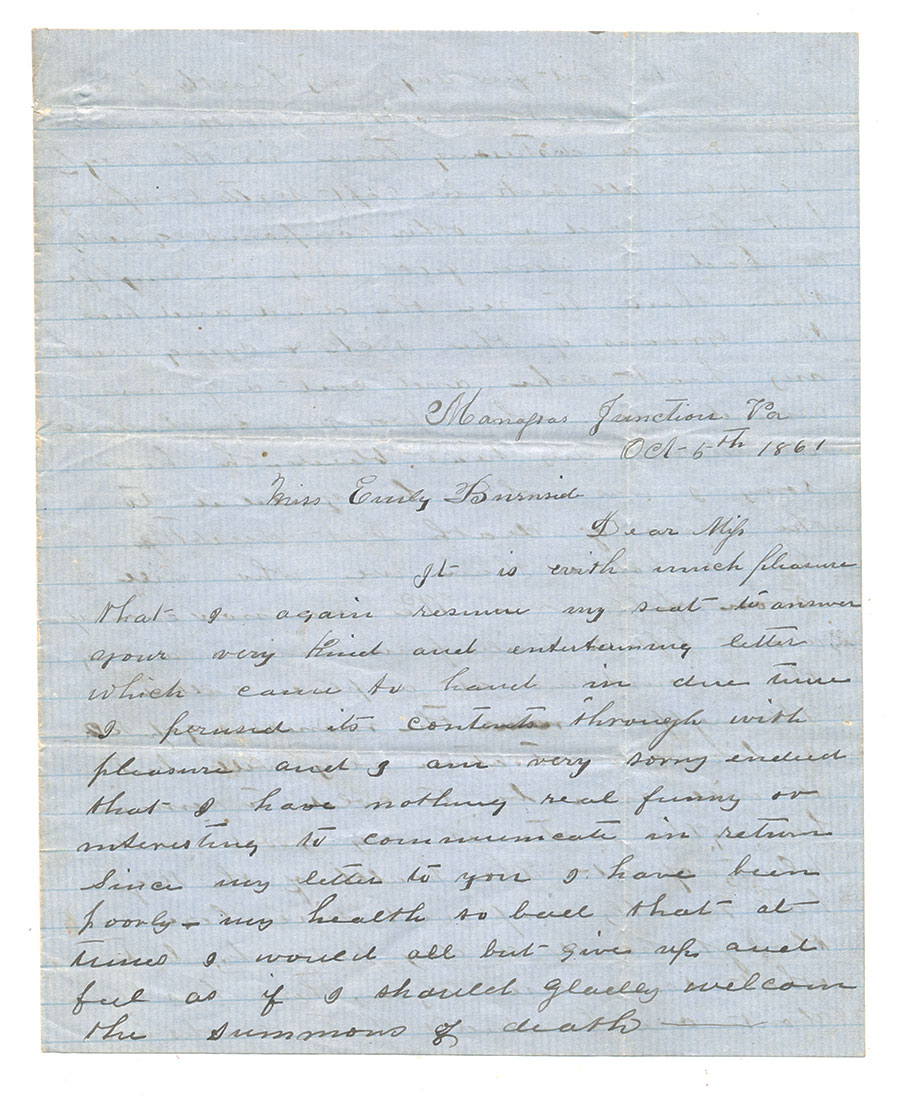 Manassas Junction Va
Oct 5th 1861
Miss Emily Burnside
Dear Miss
It is with much pleasure
that I again resume my seat to answer
your very kind and entertaining letter
which came to hand in due time
I perused its contents through with
pleasure and I am very sorry endeed
that I have nothing real funny or
interesting to communicate in return
Since my letter to you I have been
poorly - my health so bad that at
times I would all but give up and
feel as if I should gladly welcom
the summons of death